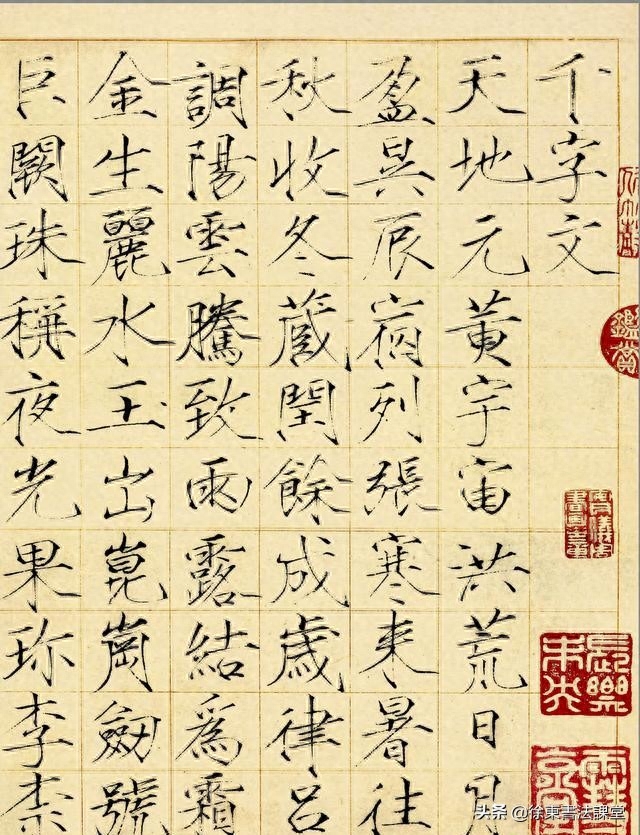 千字文
天地元黃宇宙洪荒日月
盈昃辰宿列張寒来暑往
秋收冬蔵閏餘成歲律呂
調陽雲騰致雨露結爲霜
金生麗水玉出崑崗劔號
巨闕珠稱夜光果珎李柰
鑑賞
頭条@徐東書法課堂